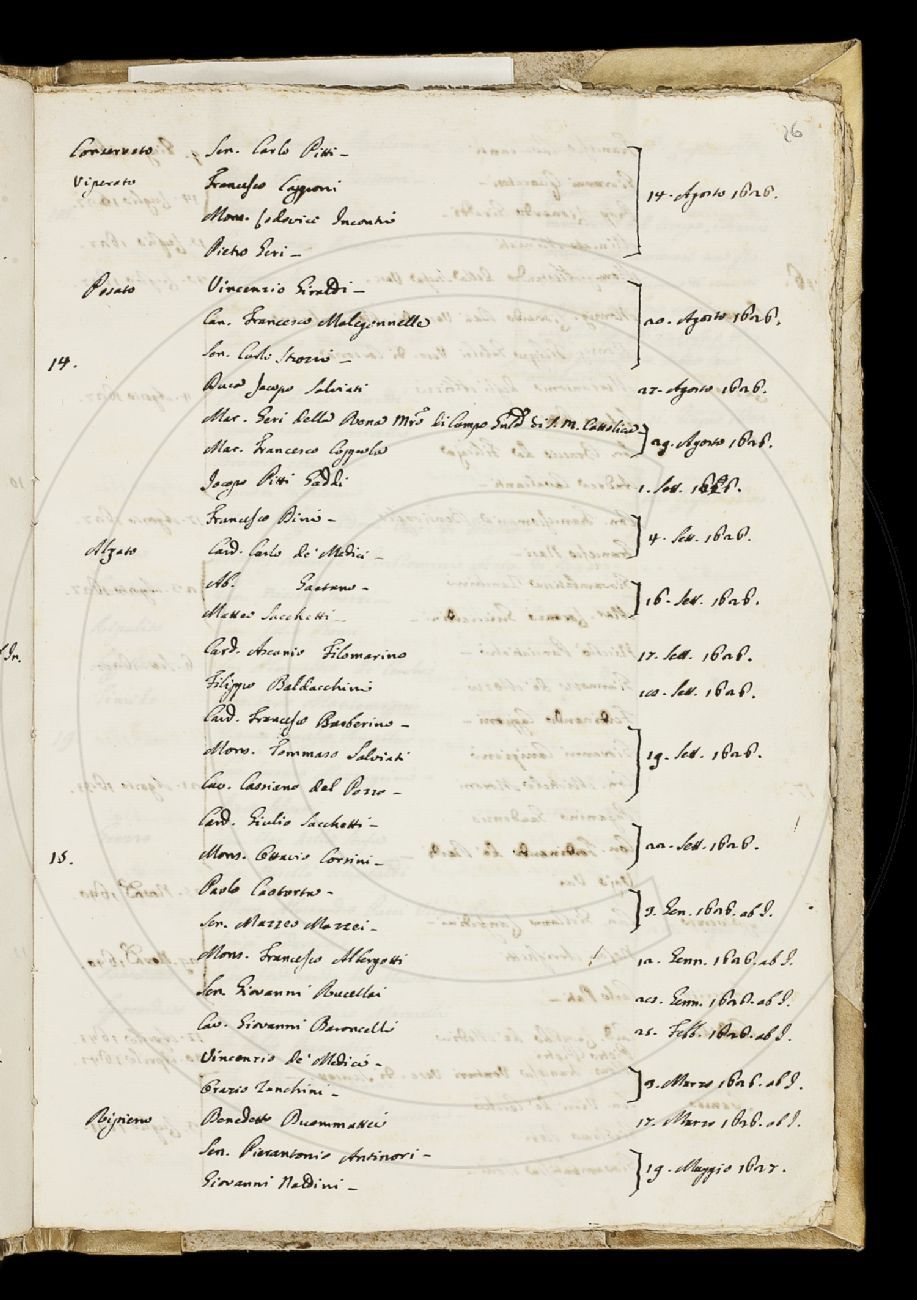 26
Conservato Sen. Carlo Pitti -
Viperato Francesco Capponi
Mons. Lodovico Incontri 14. Agosto 1626.
Pietro Geri -
Posato Vincenzio Giraldi -
Can. Francesco Malegonnelle 20. Agosto 1626.
Sen. Carlo Strozzi -
14.
Duca Jacopo Salviati 27. Agosto 1626.
Mar. Geri della Rena Mro di Campo Gāle di S. M. Cattolica
Mar. Francesco Coppola 29. Agosto 1626.
Jacopo Pitti Gaddi 1. Sett. 1626.
Francesco Bini -
4. Sett. 1626.
Alzato Card. Carlo de' Medici -
Ab. Gaetano -
16. Sett. 1626.
Matteo Sacchetti -
Card. Ascanio Filomarino 17. Sett. 1626.
Filippo Baldacchini Sett. 1626.
Card. Francesco Barberino -
Mons. Tommaso Salviati 19. Sett. 1626.
Cav. Cassiano dal Pozzo -
Card. Giulio Sacchetti -
22. Sett. 1626.
15. Mons. Ottavio Corsini -
Paolo -
3. Gen. 1626. ab I.
Sen. Mazzeo Mazzei -
Mons. Francesco Albergotti 12. Genn. 1626. ab I.
Sen. Giovanni Rucellai Genn. 1626. ab I.
Cav. Giovanni Baroncelli 25. Febb. 1626. ab I.
Vincenzio de' Medici -
3. Marzo 1626. ab I.
Orazio Zanchini -
Ripieno Benedetto Buommattei 17. Marzo 1626. ab I.
Sen. Pierantonio Antinori -
19. Maggio 1627.
Giovanni Naldini -